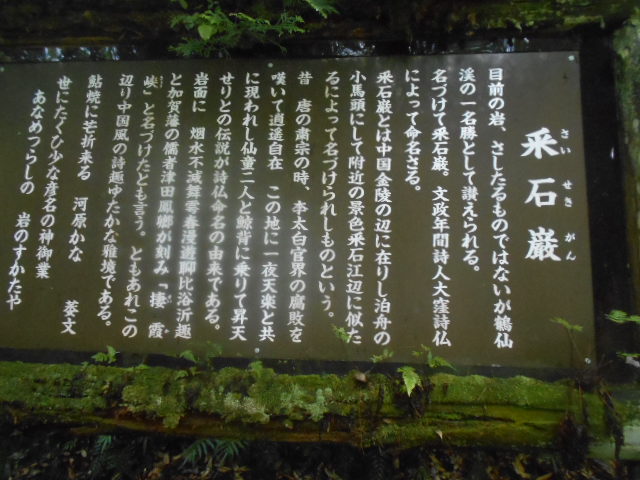 采石巌
さいせきがん
目前の岩、さしたるものではないが鶴仙
渓の一名勝として讃えられる。
名づけて采石巌。文政年間詩人大窪詩仏
によって命名さる。
采石巌とは中国金陵の辺に在りし泊舟の
小馬頭にして附近の景色采石江辺に似た
るによって名づけられしものという。
昔 唐の粛宗の時、李太白官界の腐敗を
嘆いて逍遥自在 この地に一夜天楽と共
に現われし仙童二人と鯨背に乗りて昇天
せりとの伝説が詩仏命名の由来である。
岩面に 烟水不減舞雩春漫遊聊比浴沂趣
と加賀藩の儒者津田鳳卿が刻み「捿霞
峡」と名づけたとも言う。ともあれこの
辺り中国風の詩趣ゆたかな雅境である。
鮎焼に芒折来る 河原かな
世にたぐひ少な彦名の神御業
あなめづらしの 岩のすがたや